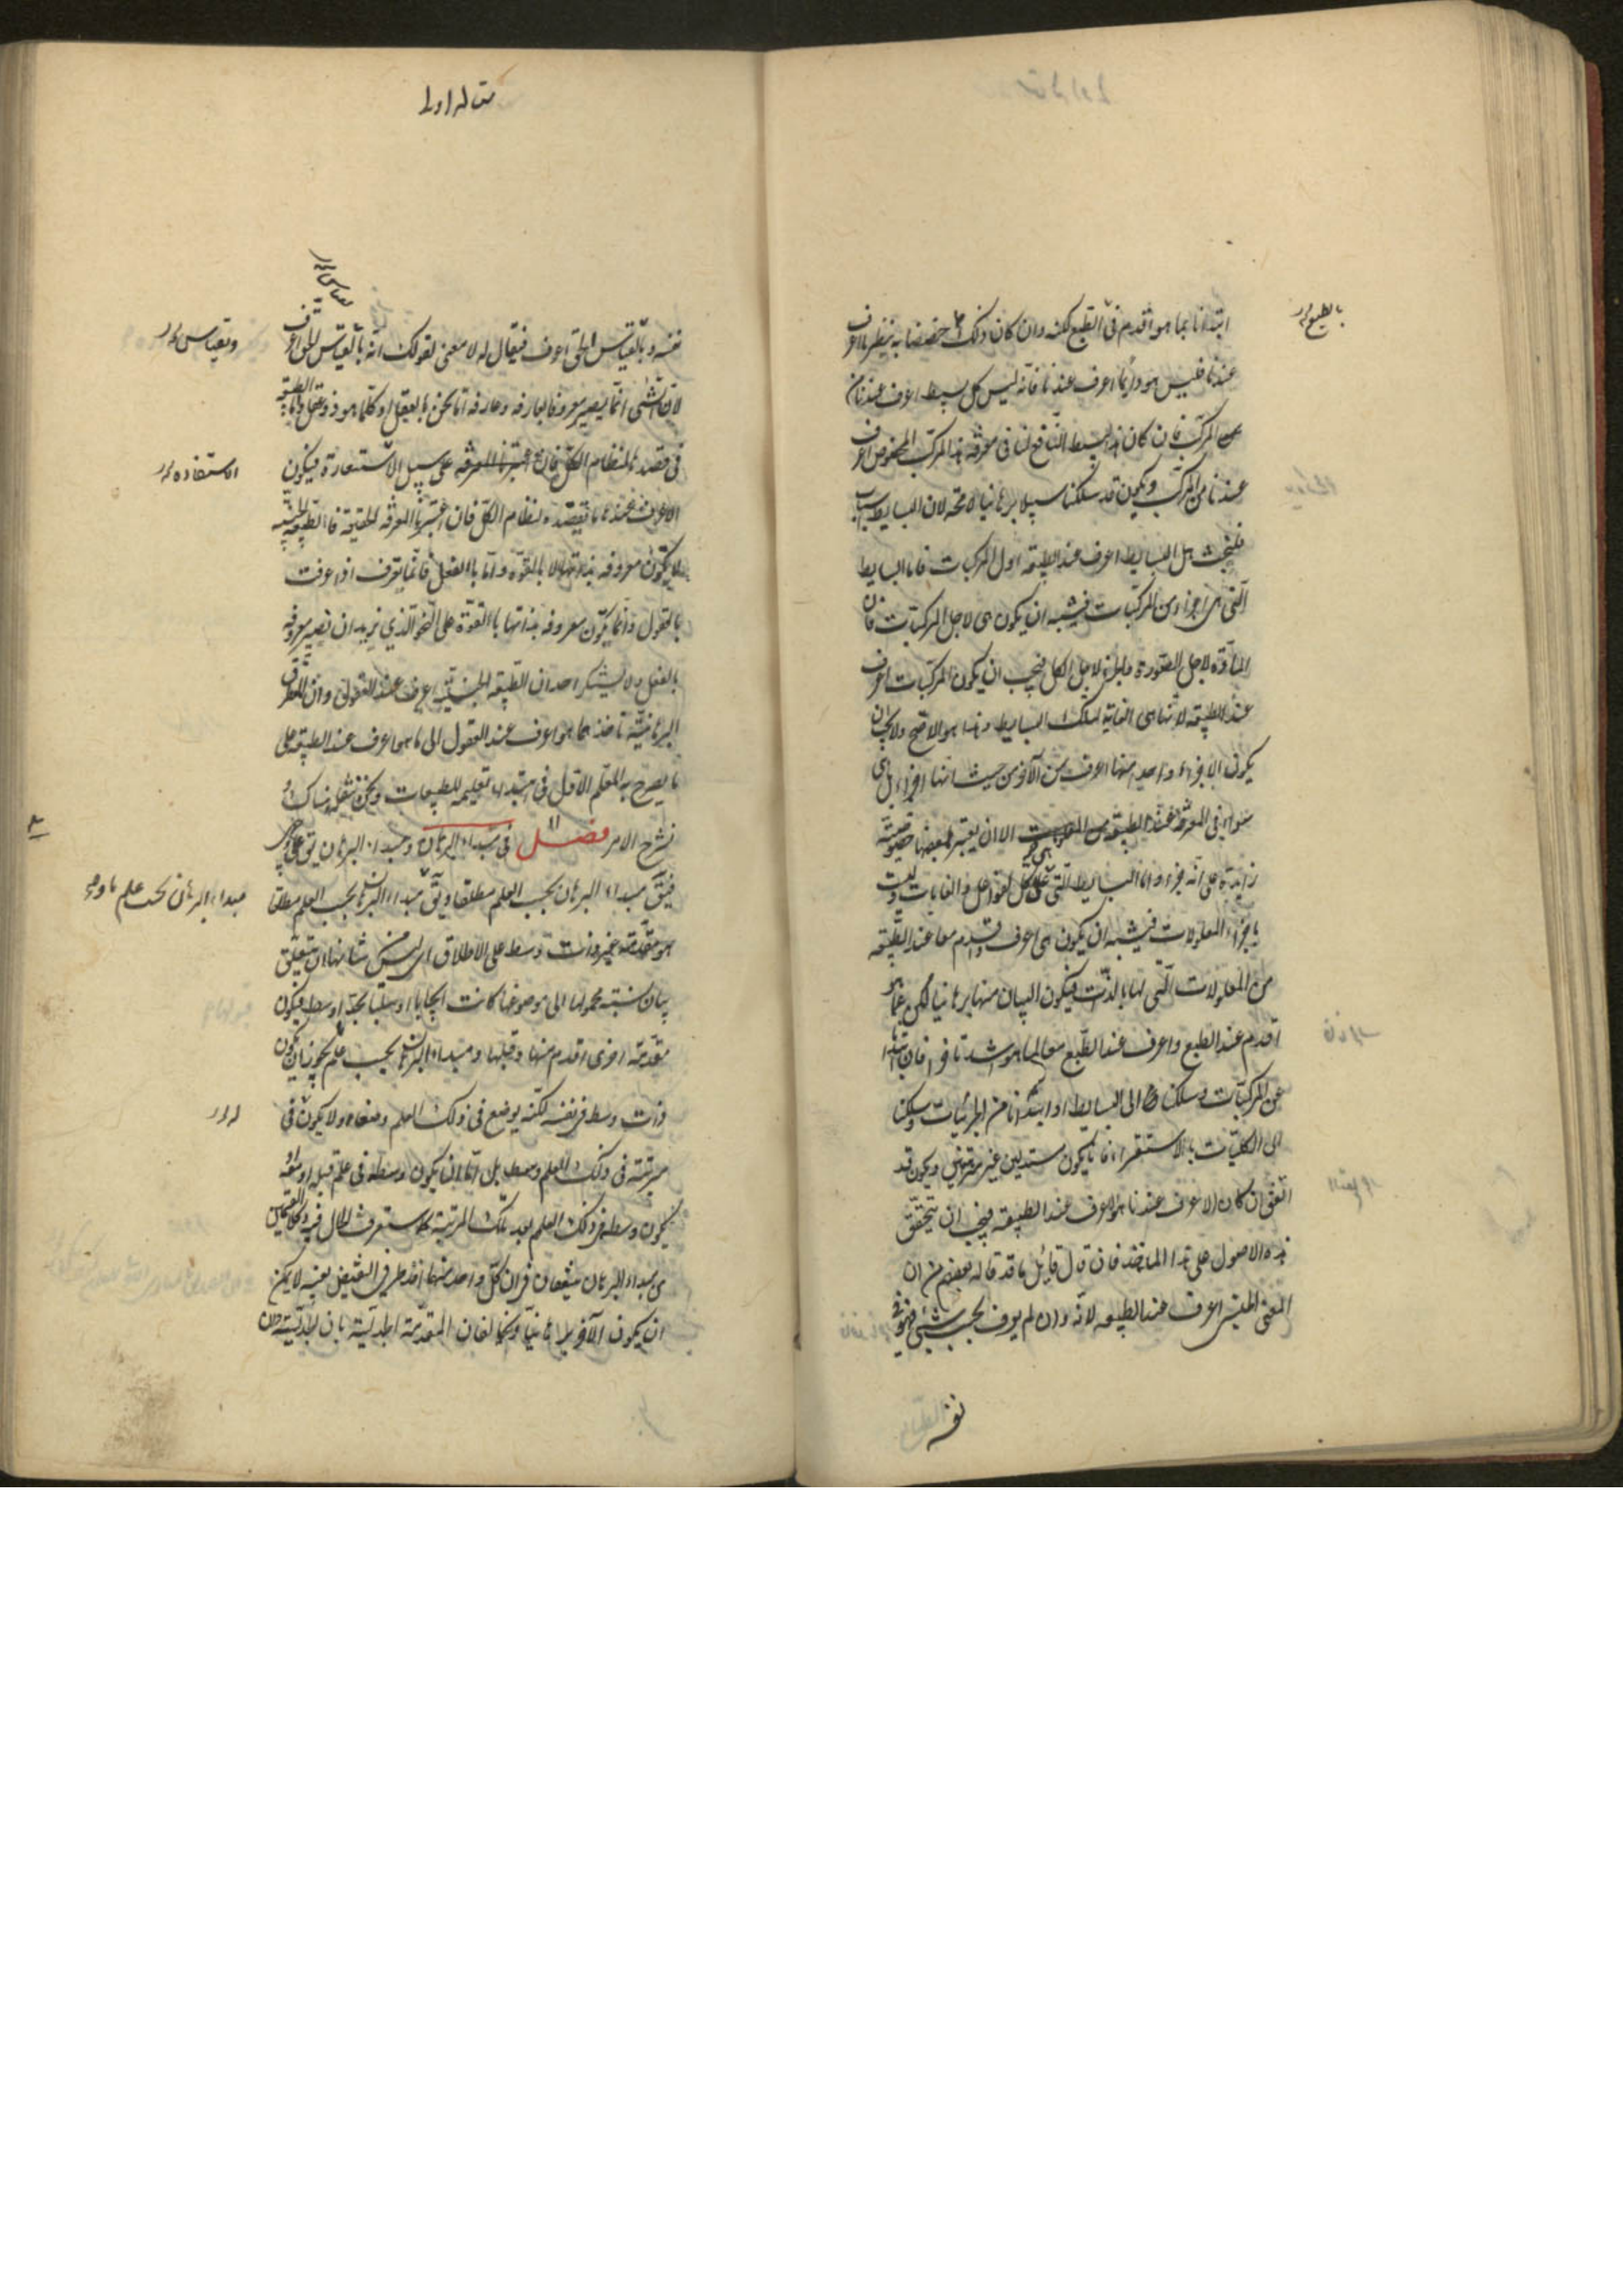 ابتدأنا بما هو اقدم فى الطبع لكنه وان كان ذلك خصصنا به فينظر ما اعرف
بالطبع
عندنا فليس هو دايما اعرف عندنا فانه ليس كل بسيط اعرف عندنا من
المركب فان كان هذا البسيط النافع لنا فى معرفة هذا المركب المخصوص اعرف
عندنا من المركب ويكون قد سلكنا سبيلا برهانيا لامحة لان البسايط اسباب
فلنبحث هل البسايط اعرف عند الطبيعة او المركبات فاما البسايط
التى هى اجزاء من المركبات فيشبه ان يكون هى لاجل المركبات فان
المادة لاجل الصورة والجزء لاجل الكل فيجب ان يكون المركبات اعرف
عند الطبيعة لانها هى الغاية لتلك البسايط وهذا هو الاصح ولا يجب ان
يكون الاجزاء واحد منها اعرف من الآخر من حيث انها اجزاء بل هى
سواء فى المعرفة عند الطبيعة الا ان يعتبر لبعضها خصوصية
زايدة على انه جزء واما البسايط التى هى علل كالفواعل والغايات وليست
باجزاء المعلولات فيشبه ان يكون هى اعرف واقدم معا عند الطبيعة
من المعلولات التى لها بالذات فيكون البيان منها برهانيا لكن عما هو
اقدم عند الطبع واعرف عند الطبع معا لما هو اشد تاخرا فان ابتدأنا
عن المركبات وسلكنا الى البسايط او ابتدأنا من الجزئيات وسلكنا
الى الكليات بالاستقراء فانا يكون مستدلين غير مبرهنين ويكون قد
اتفق ان كان الاعرف عندنا هو الاعرف عند الطبيعة فيجب ان يتحقق
هذه الاصول على هذا الماخذ فان قال قائل ما قد قاله بعضهم من ان
المعنى الجنسى اعرف عند الطبيعة لانه وان لم يعرف بحسب شىء فهو فى
نفسه
مقاله اولى
نفسه وبالقياس الى الحق اعرف فيقال له لا معنى لقولك انه بالقياس الى الحق اعرف
وبقياس
لان الشىء انما يصير معروفا لعارفه وعارفه اما نحن بالعقل او كلما هو ذو عقل واما الطبيعة
فى قصدها لنظام الكل فان اعتبرنا المعرفة على سبيل الاستعارة فيكون
الاستفاده
الاعرف عندها ما تقصده لنظام الكل فان اعتبرنا المعرفة الحقيقة فالطبيعة الجنسية
لا يكون معروفة بذاتها الا بالقوة واما بالفعل فانما يعرف اذا عرفت
بالعقول وانما يكون معروفة بذاتها بالقوة على النحو الذى نريد ان تصير معروفة
بالفعل ولا يشك احد ان الطبيعة الجنسية اعرف عند العقول وان الطرق
البرهانية تاخذ مما هو اعرف عند العقول الى ما هو اعرف عند الطبيعة على
ما يصرح به المعلم الاول فى ابتداء تعليمه للطبيعيات ونحن نتقبله هناك
نشرح الامر فصل فى مبداء البرهان ومبداء البرهان يق على وجهين
فيق مبداء البرهان بحسب العلم مطلقا ويق مبداء البرهان بحسب العلم مطلقا
مبداء البرهان بحسب علم ما ومبد
هو مقدمة غير ذات وسط على الاطلاق اى ليس من شانها ان يتعلق
بيان نسبة محمولها الى موضوعها كانت ايجابا او سلبا بحد اوسط فيكون
مقدمة اخرى اقدم منها وقبلها ومبداء البرهان بحسب علم ما يجوز ان يكون
ذات وسط فى نفسه لكنه يوضع فى ذلك العلم وضعا ولا يكون فى
مرتبته فى ذلك العلم وسط بل اما ان يكون وسطه فى علم قبله او معه او
يكون وسطه فى ذلك العلم بعد تلك المرتبة كما ستعرف الحال فيه وكلا القسمين
من مبداء البرهان متفقان فى ان كل واحد منهما اخذ طرفى النقيض بعينه لا يمكن
ان يكون الآخر برهانيا ويخالفان المقدمة الجدلية بان الجدلية